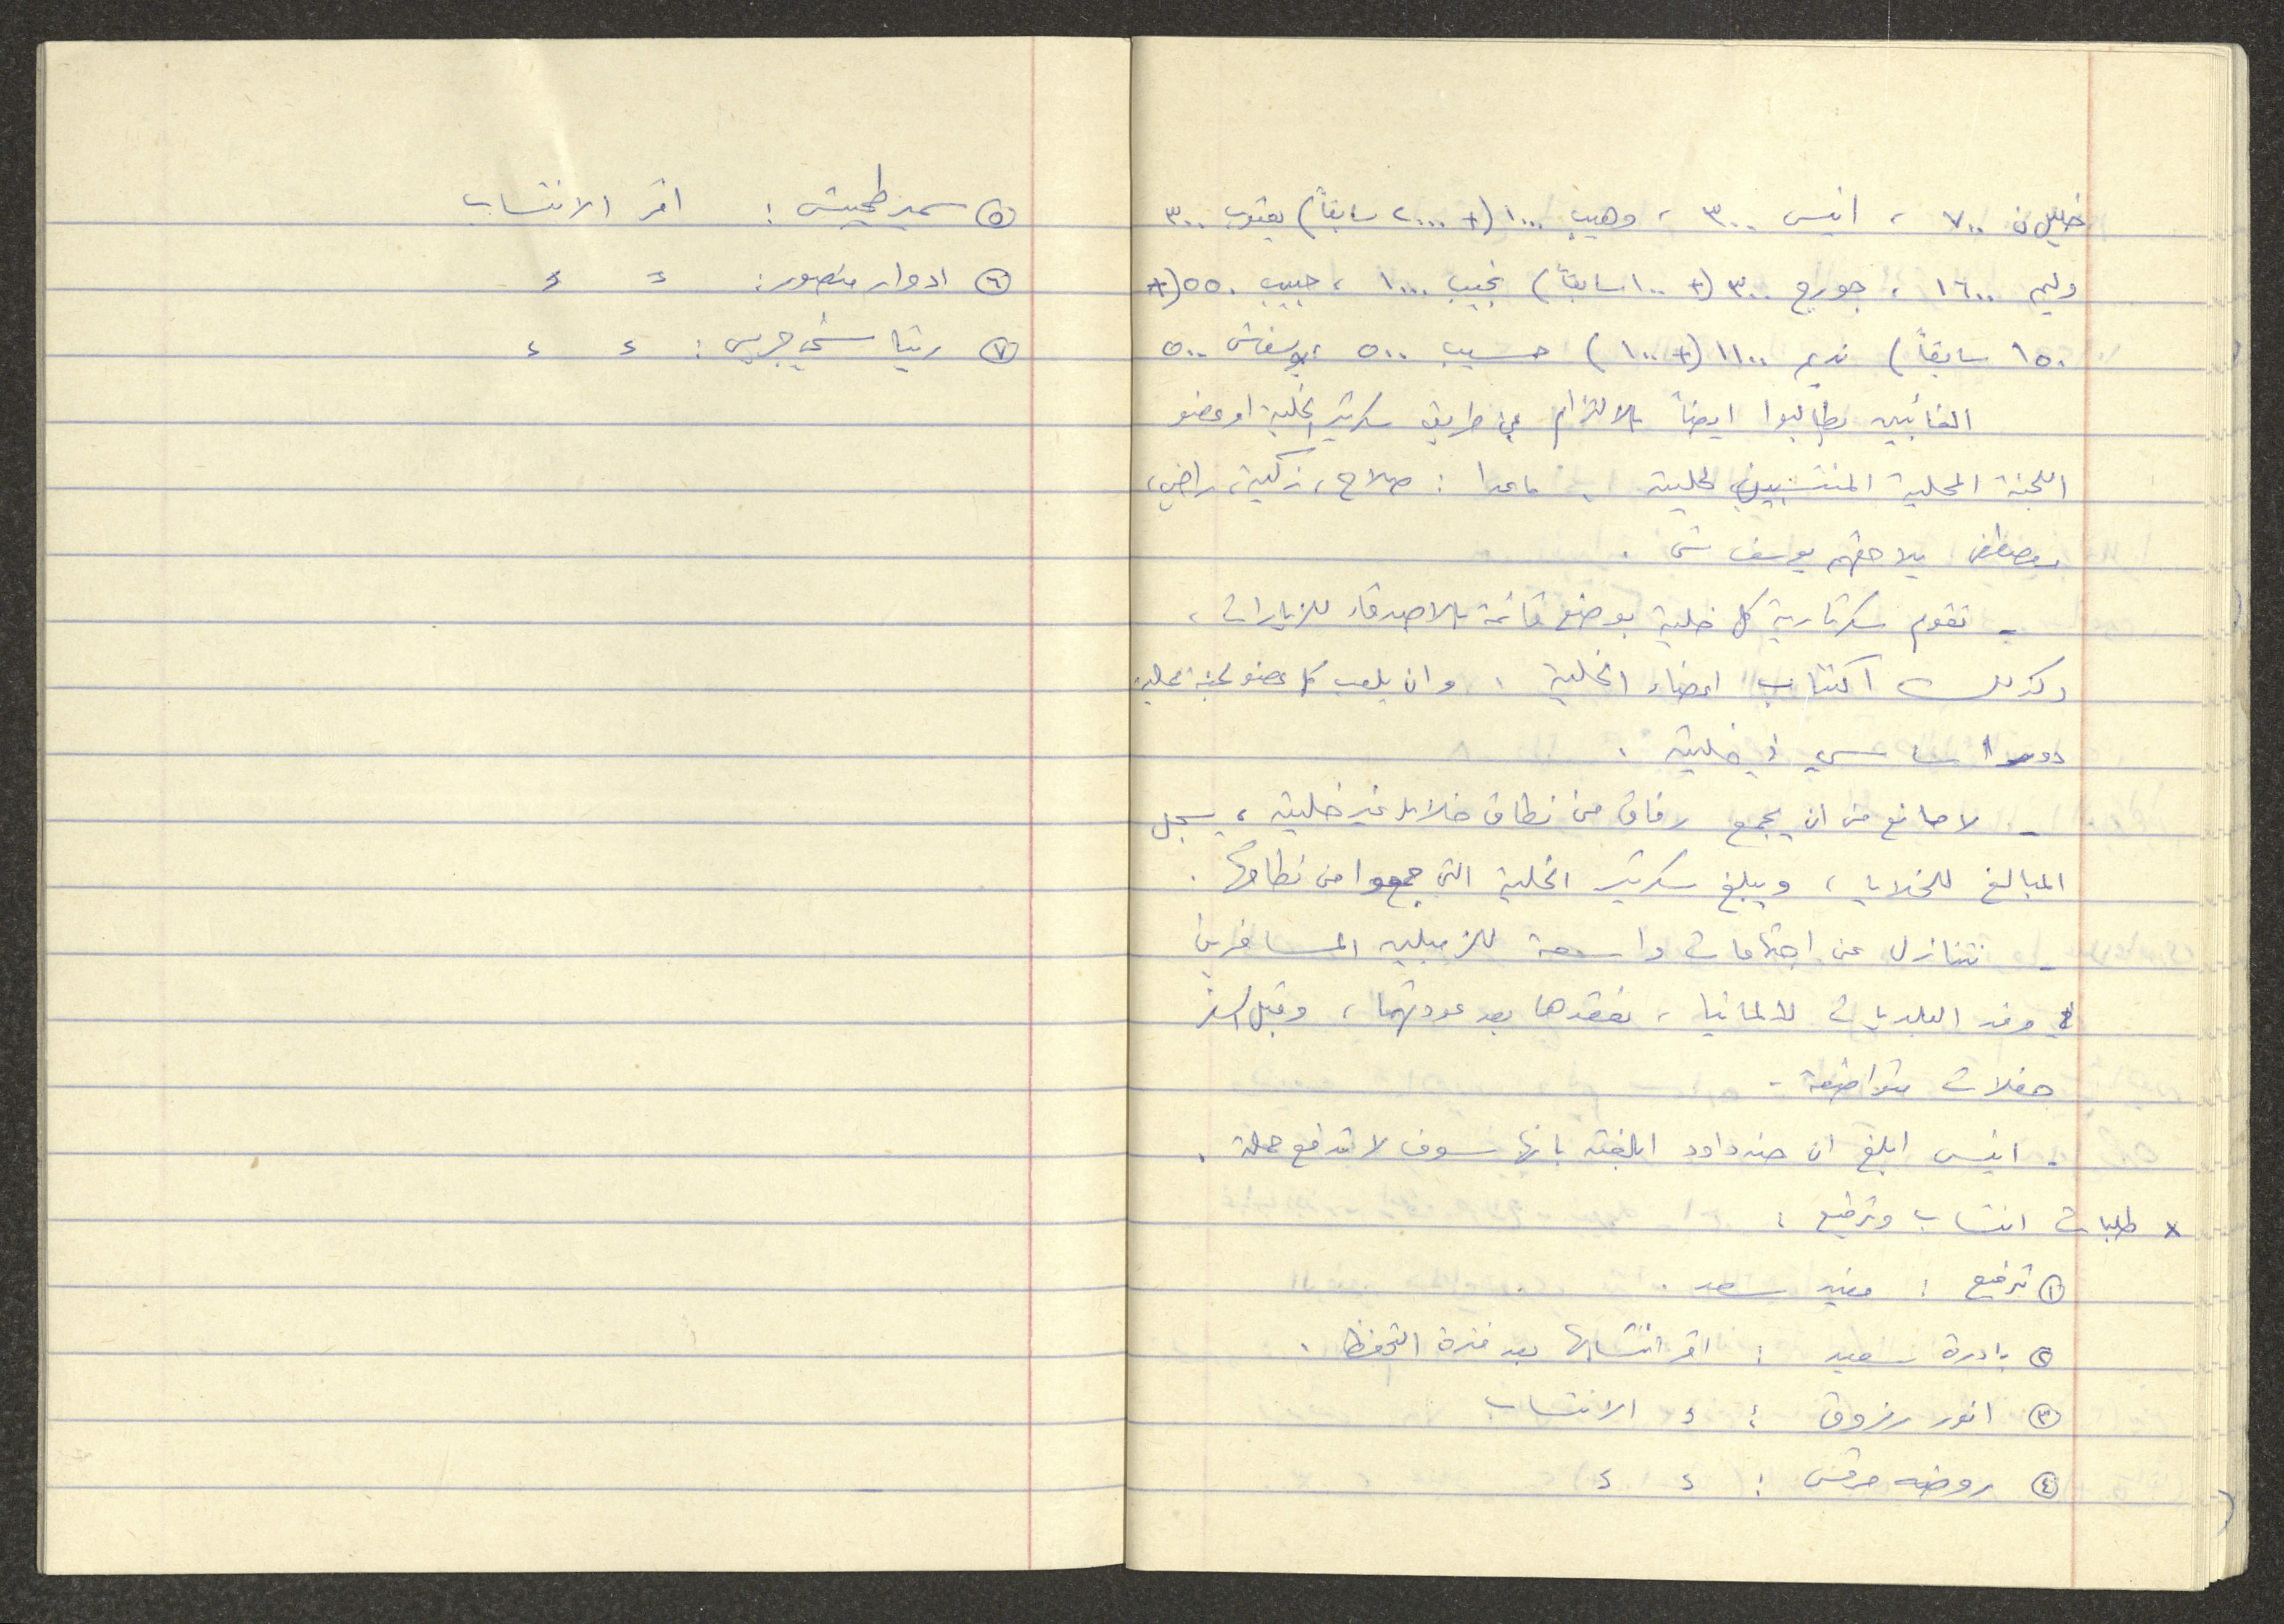 خليل ن ٧٠٠ ، انيس ٣٠٠ ، وهيب ١٠٠٠ (+ ٢٠٠٠ سابقاً) يعقوب ٣٠٠
وليم ١٦٠٠ ، جورج ٣٠٠ (+ ١٠٠ سابقاً) نجيب ١٠٠٠ ، حبيب ٥٥٠ (+
١٥٠ سابقاً) نديم ١١٠٠ (+ ١٠٠) حسيب ٥٠٠ ، يوسف ش ٥٠٠
الغائبين يطالبوا ايضاً بالالتزام عن طريق سكرتير الخلية او عضو
اللجنة المحلية المنتسبين لخليته . ماعدا : صلاح ، زكية ، راضي ،
مصطفى يلاحقهم يوسف ش .
- تقوم سكرتارية كل خلية بوضع قائمة بالاصدقاء للزيارات ،
وكذلك اكتتاب اعضاء الخلية ، وان يلعب كل عضو لجنة محلية
دور اساسي في خليته .
- لا مانع من ان يجمع رفاق من نطاق خلايا غير خليته ، يسجل
المبالغ للخلايا ، ويبلغ سكرتير الخلية التي جمعوا من نطاقها .
- نتنازل عن اجتماعات واسعة للزميلين المسافرين
وفد البلديات لالمانيا ، نعقدها بعد عودتهما ، وقبل السفر
حفلات متواضعة -
- انيس ابلغ ان هند داود ابلغته بانها سوف لا تدفع حملة .
x طلبات انتساب وترفيع :
① ترفيع : مفيد سعد .
② نادرة سعيد : اقر انتسابها بعد فترة التحفظ .
③ انور رزوق : ؛ الانتساب
④ روضه مرقس : ؛ ؛
⑤ سمير طحيش : اقر الانتساب
⑥ ادوار منصور : = ؛
⑦ رتيبا شحي جريس : ؛ ؛